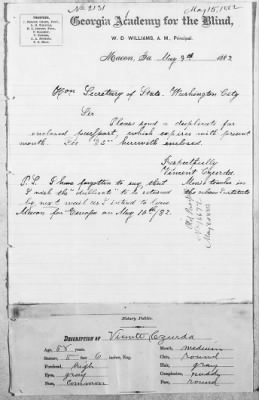 No 2131
May 15, 1882
TRUSTEES.
Georgia Academy for the Blind,
W. D. WILLIAMS, A. M., Principal.
Macon, Ga May 9th 1882
Hon Secretary of State. Washington City
Sir
Please send a duplicate for
enclosed passport, which expires with present
month. Fee "$5" herewith enclosed.
Respectfully
Vincent Czurda.
Music teacher in
the above Institute
P. S. I have forgotten to say, that
I wish the "duplicate" to be returned
by next mail as I intend to leave
Macon for Europe on May 16th/82.
Notary Public.
DESCRIPTION OF Vicente Czurda
Age, 55 years
Stature, 5 feet 6 inches, Eng.
Forehead, high
Eyes, gray
Nose, Common
Mouth, medium
Chin, round
Hair, gray
Complexion, ruddy
Face, round